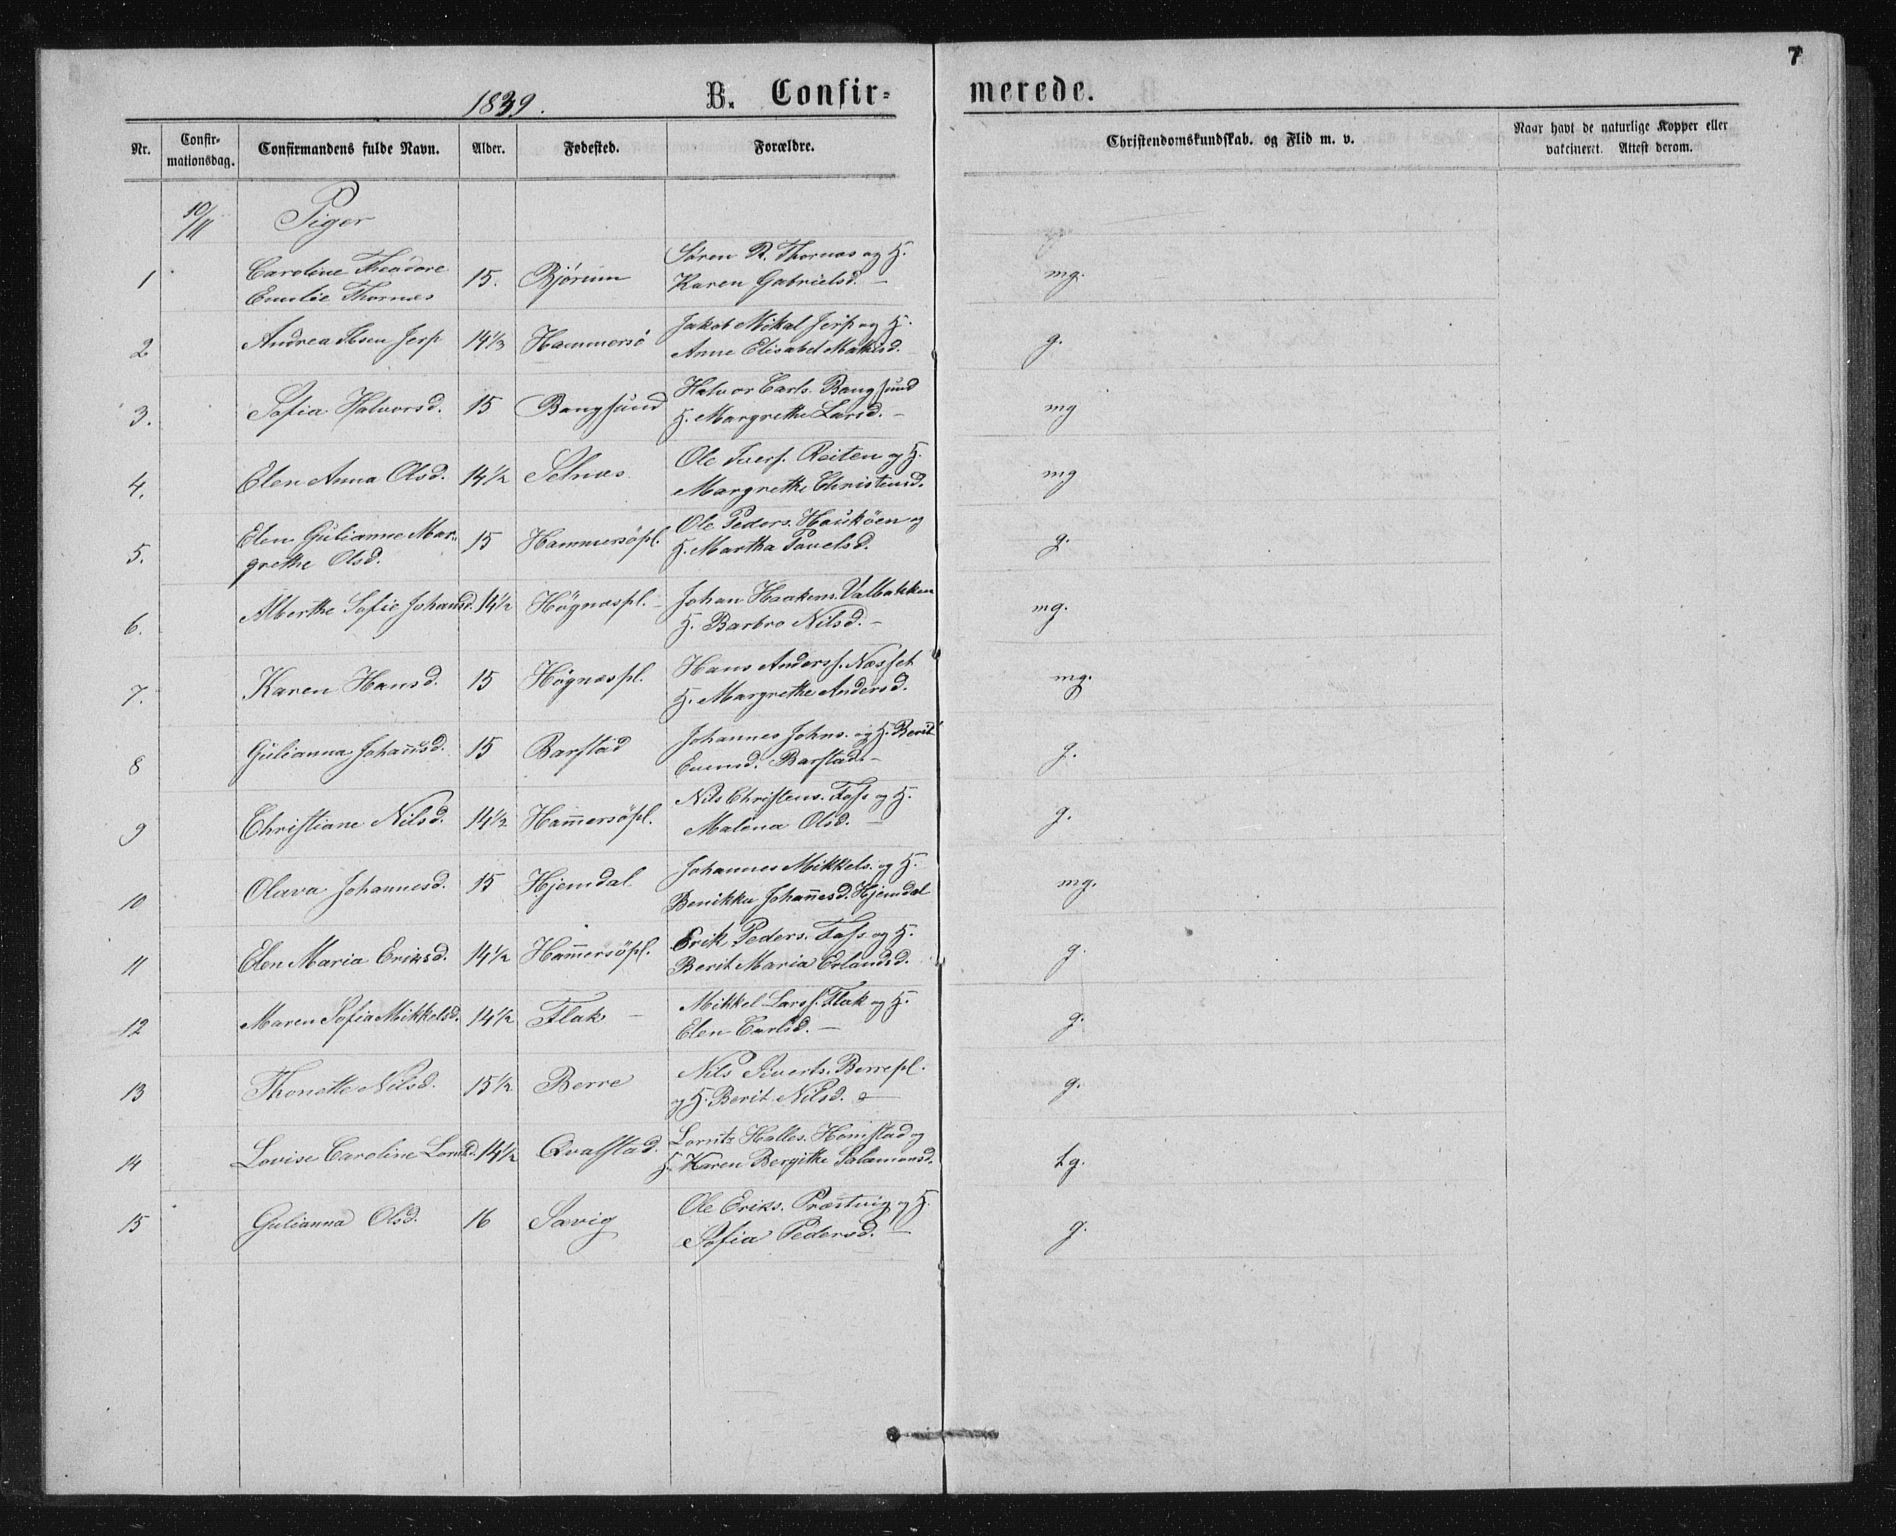 7
1839.
B. Confir-
merede.
Nr.
Confir-
mationsdag.
Confirmandens fulde Navn.
Alder.
Fødested.
Forældre.
Christendomskundskab. og Flid m. v.
Naar havt de naturlige Kopper eller
vakcineret. Attest derom.
10/11 Piger
1 Caroline Theodore
Emilie Thornæs
15. Bjørum
Søren R. Thornæs og H.
Karen Gabrielsd. –
mg.
2 Andrea Jerp 14 1/3 Hammersø
Jakob Mikal Jerp og H.
Anne Elisabet
g.
3. Sofia Halvorsd. 15 Bangsund
Halvor Carls. Bangsund
H. Margrethe Larsd. –
mg
4. Elen Anna Olsd. 14 1/2 Selnæs
Ole Iversf. Reiten og H.
Margrethe Christensd.
mg
5. Elen Gulianne Mar-
grethe Olsd.
15 Hammersöpl.
Ole Peders. Hauköen og
H. Martha Pavelsd.
g.
6. Alberthe Sofie Johansd. 14 1/2 Högnæspl. –
Johan Haakens. Valbakken
H. Barbro Nilsd. –
mg.
7. Karen Hansd. 15 Högnæspl.
Hans Andersf. Næsset
H. Margrethe Andersd.
mg.
8 Gulianna Johansd. 15 Barstad
Johannes Johns. og H. Berit
Evensd. Barstad –
g.
9 Christiane Nilsd. 14 1/2 Ham̅ersöpl.
Nils Christens. Foss og H.
Malena Olsd. –
g.
10 Olava Johannesd. 15 Hjemdal
Johannes Mikkels. og H.
Benikka Johan̅esd. Hjemdal
mg.
11 Elen Maria Eriksd. 14 1/2 Ham̅ersöpl.
Erik Peders. Foss og H.
Berit Maria Erlandsd.
g.
12 Maren Sofia Mikkelsd. 14 1/2 Flak –
Mikkel Larsf. Flak og H.
Elen Carlsd. –
g.
13 Thonette Nilsd. 15 1/2 Berre
Nils Siverts. Berrepl.
og H. Berit Nilsd. –
g.
14 Lovise Caroline 14 1/2 Qvalstad.
Lorntz Halles. Homstad og
H. Karen Bergitte Salamonsd.
tg.
15 Gulianna Olsd. 16 Savig
Ole Eriks. Præstvig og H.
Sofia Pedersd. –
g.